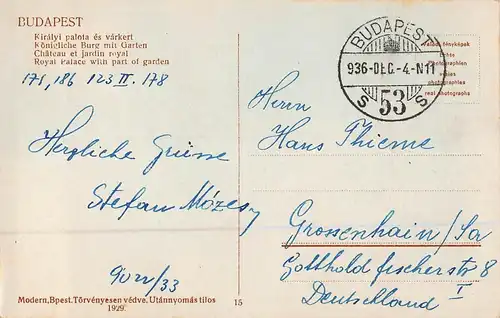 BUDAPEST
Királyi palota és várkert
Königliche Burg mit Garten
Château et jardin royal
Royal Palace with part of garden
175, 186 123 II. 178
Herzliche Grüsse
Stefan Mózes
Modern, Bpest. Törvényesen védve. Utánnyomás tilos
1929.
15
BUDAPEST
936-DEC.-4.-N11
S 53 S
Valódi fényképek
Echte
Photographien
photographies
real photographs
Herrn
Hans Thieme
Grossenhain/Sa
Gotthold fischerstr 8
I
Deutschland